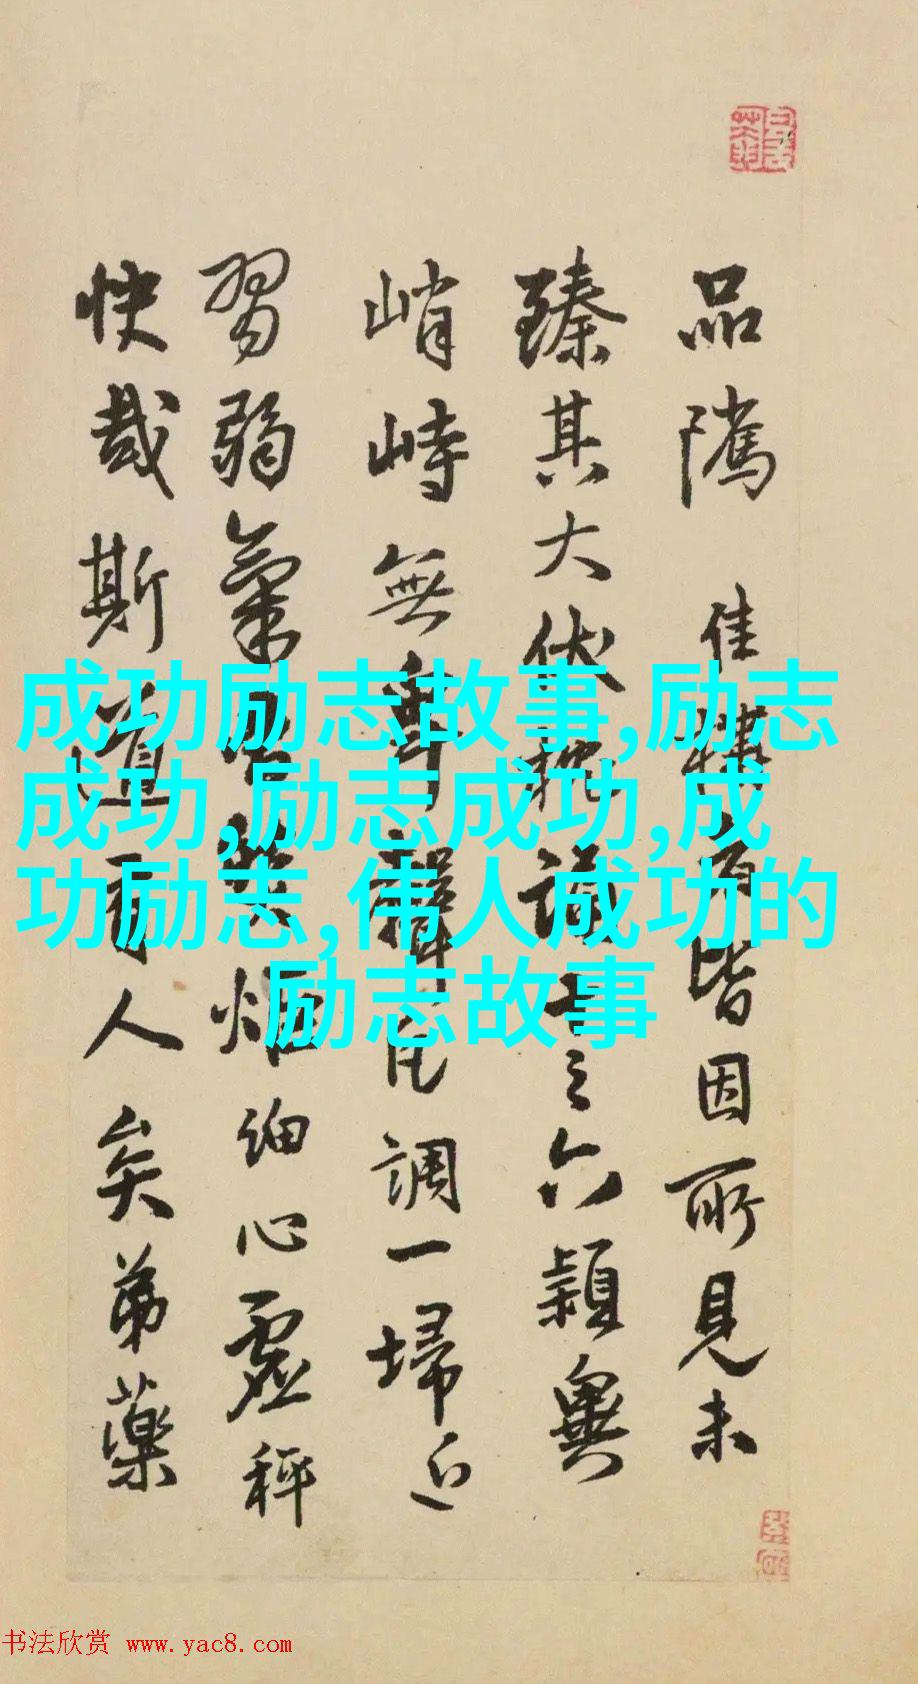 品隲佳皆因所見未
臻其大伏識之六穎
峭峙無凡調一埽近
習弱氣細心虛秤
快哉斯道有人矣弟藥
成功励志故事,励志
成功,励志成功,成
功励志,伟人成功的
励志故事
书法欣赏 www.yac8.com